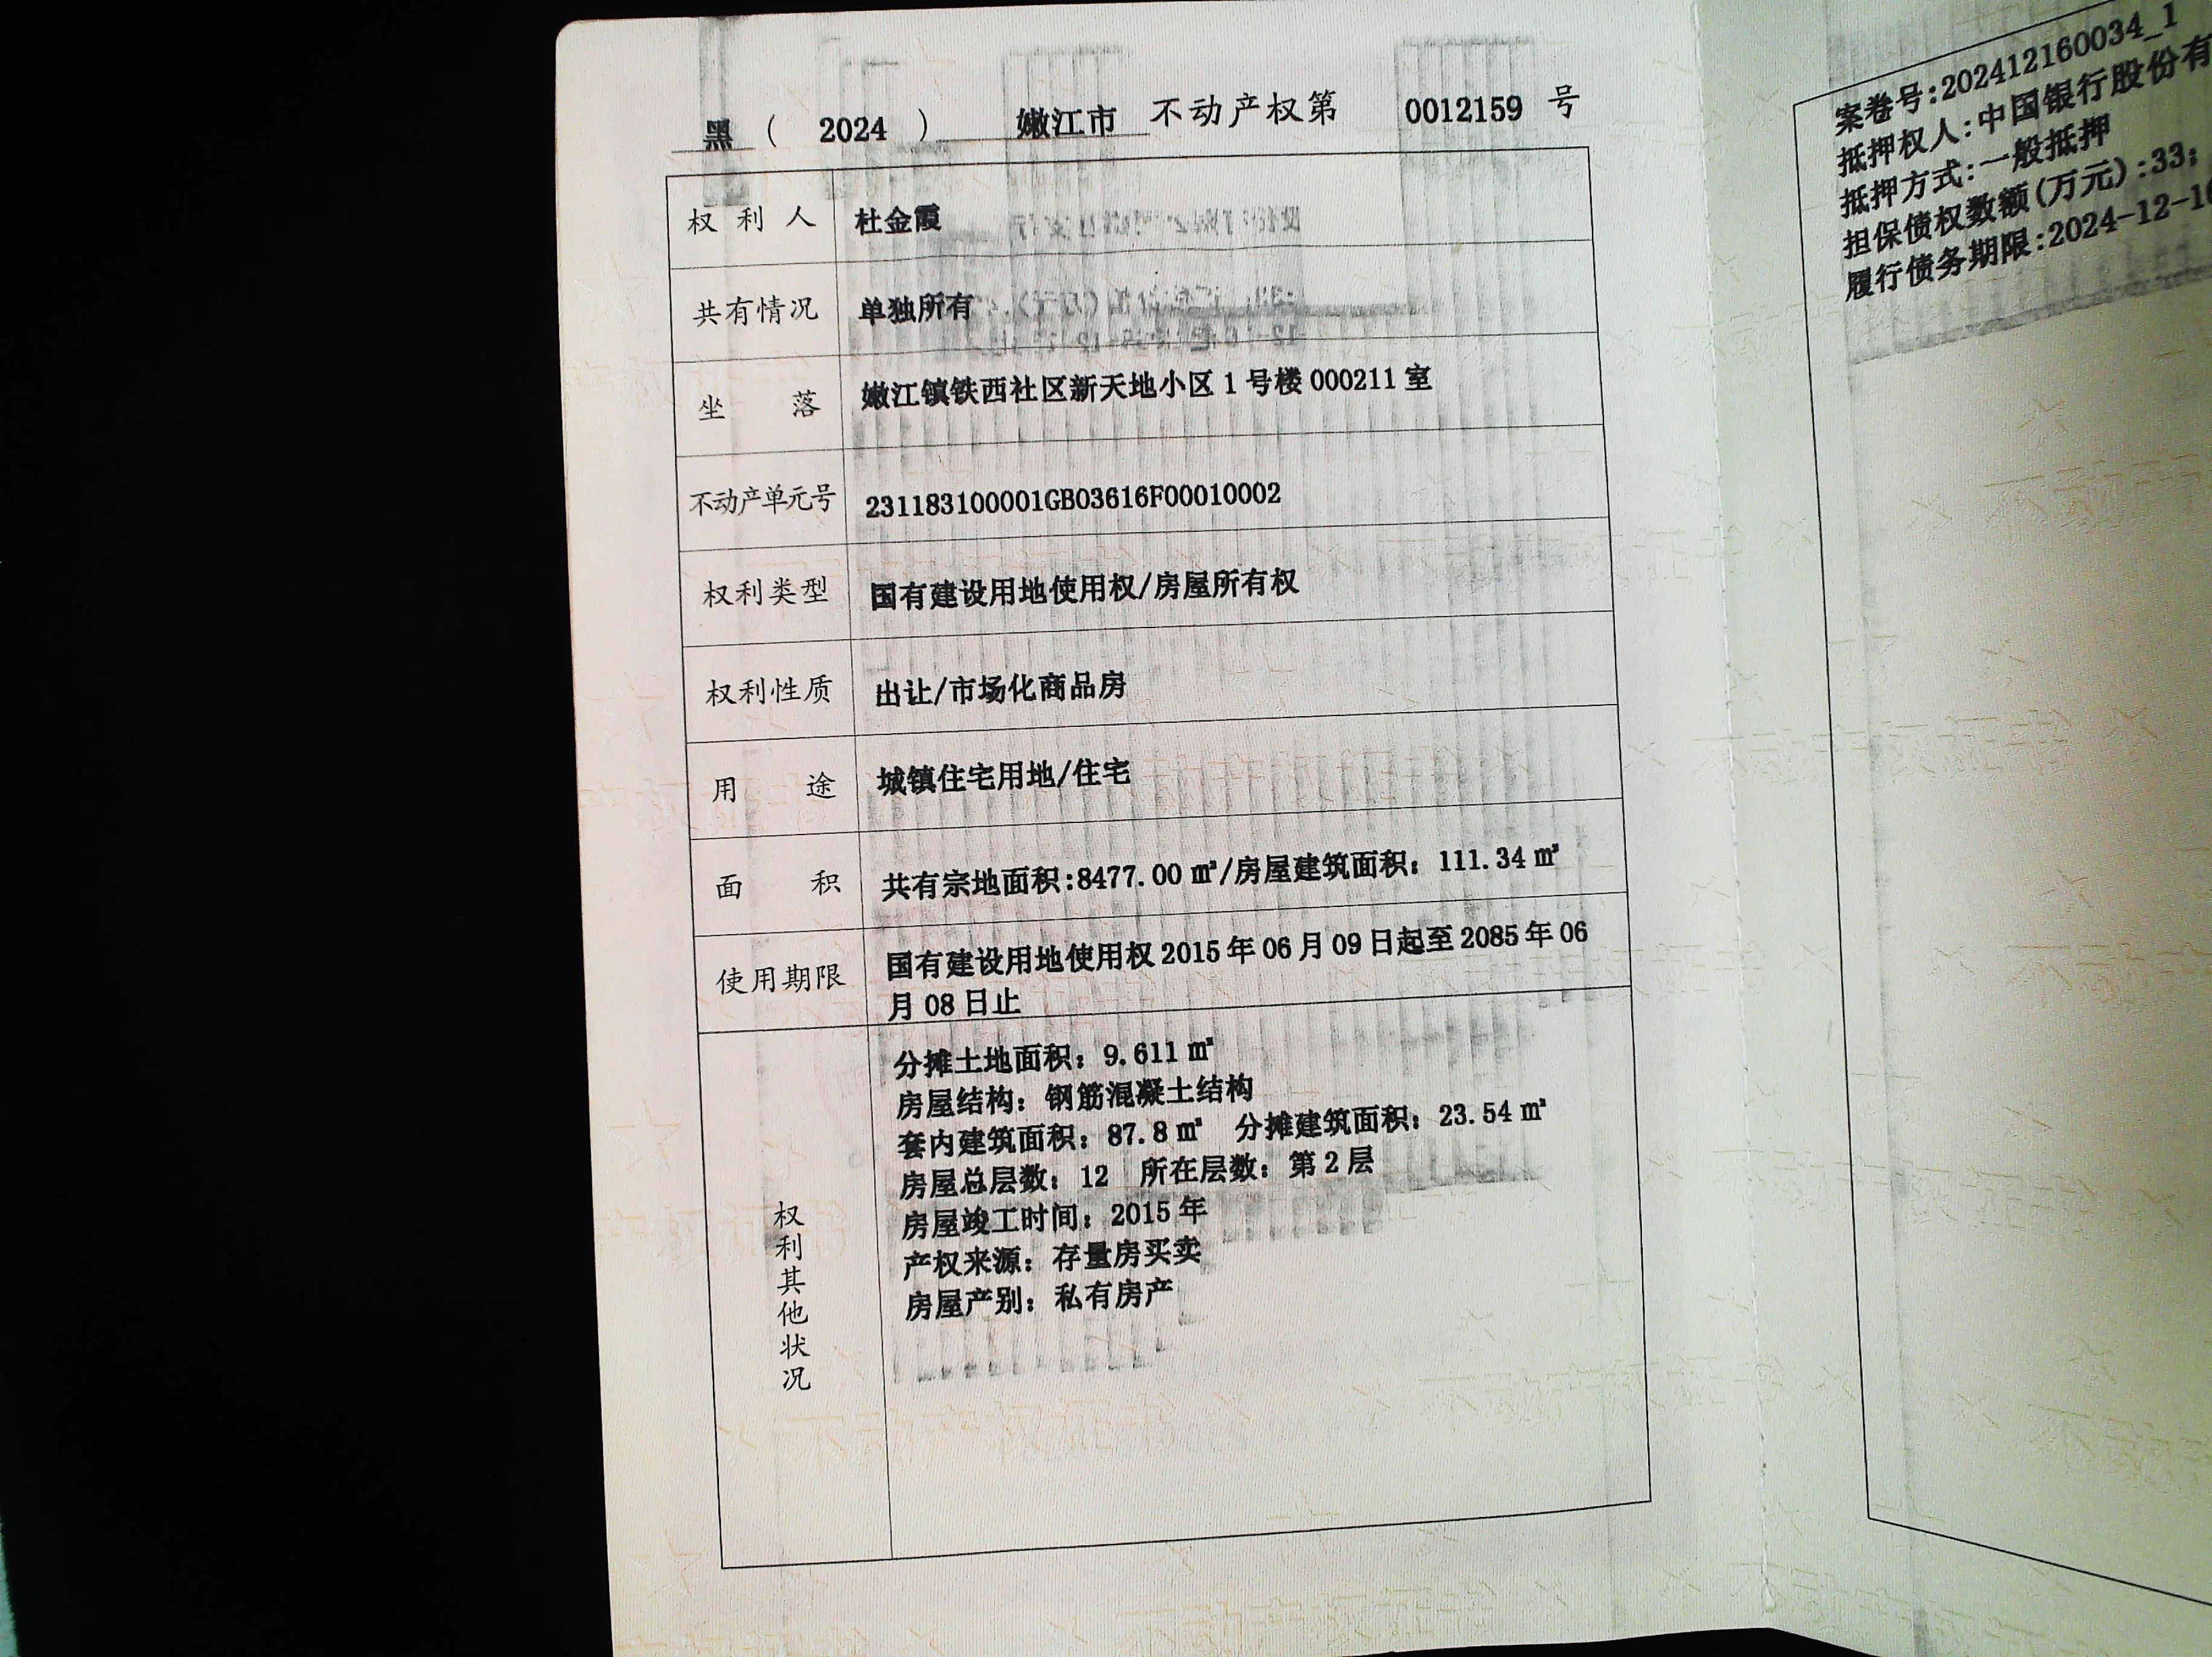 黑 ( 2024 ) 嫩江市 不动产权第 0012159 号
权利人 杜金霞
共有情况 单独所有
坐落 嫩江镇铁西社区新天地小区1号楼000211室
不动产单元号 231183100001GB03616F00010002
权利类型 国有建设用地使用权/房屋所有权
权利性质 出让/市场化商品房
用途 城镇住宅用地/住宅
面积 共有宗地面积:8477.00㎡/房屋建筑面积：111.34㎡
使用期限 国有建设用地使用权2015年06月09日起至2085年06
月08日止
权利其他状况
分摊土地面积：9.611㎡
房屋结构：钢筋混凝土结构
套内建筑面积：87.8㎡ 分摊建筑面积：23.54㎡
房屋总层数：12 所在层数：第2层
房屋竣工时间：2015年
产权来源：存量房买卖
房屋产别：私有房产
案卷号:202412160034_1
抵押权人:中国银行股份有
抵押方式:一般抵押
担保债权数额(万元):33;
履行债务期限:2024-12-16